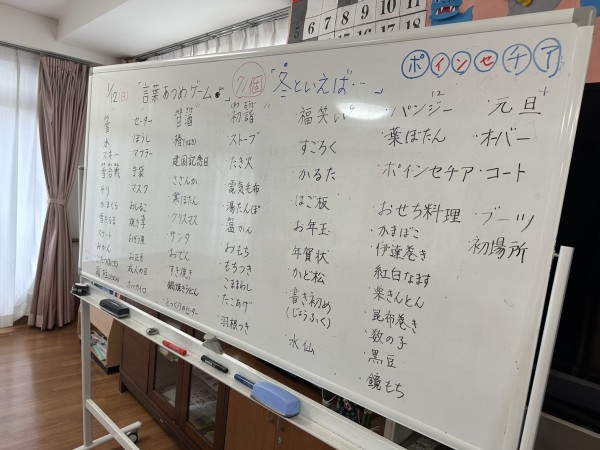 1/12(日)
「言葉あつめゲーム♪
71個
「冬といえば…」
ポインセチア
雪
氷
スキー
雪合戦
そり
かまくら
雪だるま
スケート
みかん
セーター
ぼうし
マフラー
手袋
マスク
おしるこ
焼き芋
お正月
成人の日
ホッカイロ
甘酒
建国記念日
さざんか
葉ぼたん
クリスマス
サンタ
すき焼き
鍋焼きうどん
とっくりのセーター
初詣
ストーブ
たき火
電気毛布
湯たんぽ
おもち
もちつき
こままわし
たこあげ
羽根つき
福笑い
すごろく
かるた
はご板
お年玉
年賀状
かど松
書き初め
水仙
パンジー
葉ぼたん
ポインセチア
おせち料理
かまぼこ
伊達巻き
紅白なます
栗きんとん
昆布巻き
数の子
黒豆
鏡もち
元旦
オーバー
コート
ブーツ
初場所
5 6 7 8 9
11
16 17 18